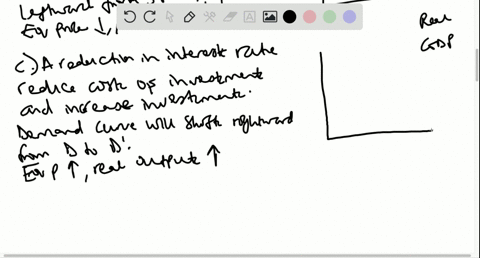 Leftward
Eqv Price ↓,
Real
GDP
c.) A reduction in interest rate
reduce cost of investment
and increase investment.
Demand curve will shift rightward
from D to D'.
Eqv P ↑, real output ↑